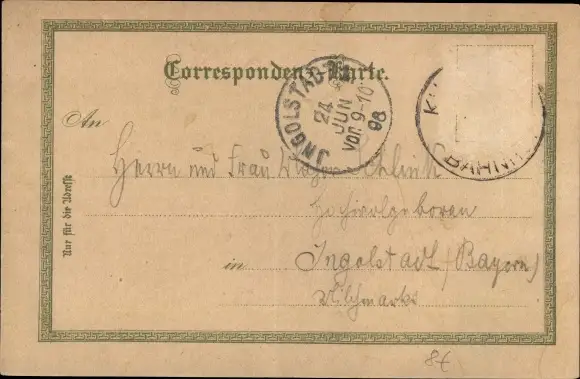 Correspondenz-Karte.
INGOLSTADT
24
JUN
Vor. 9-10
98
K
BAHNH
An
Herrn und Frau
Hochwolgeboren
in Ingolstadt (Bayern)
Milchmarkt
Nur für die Adresse
8€